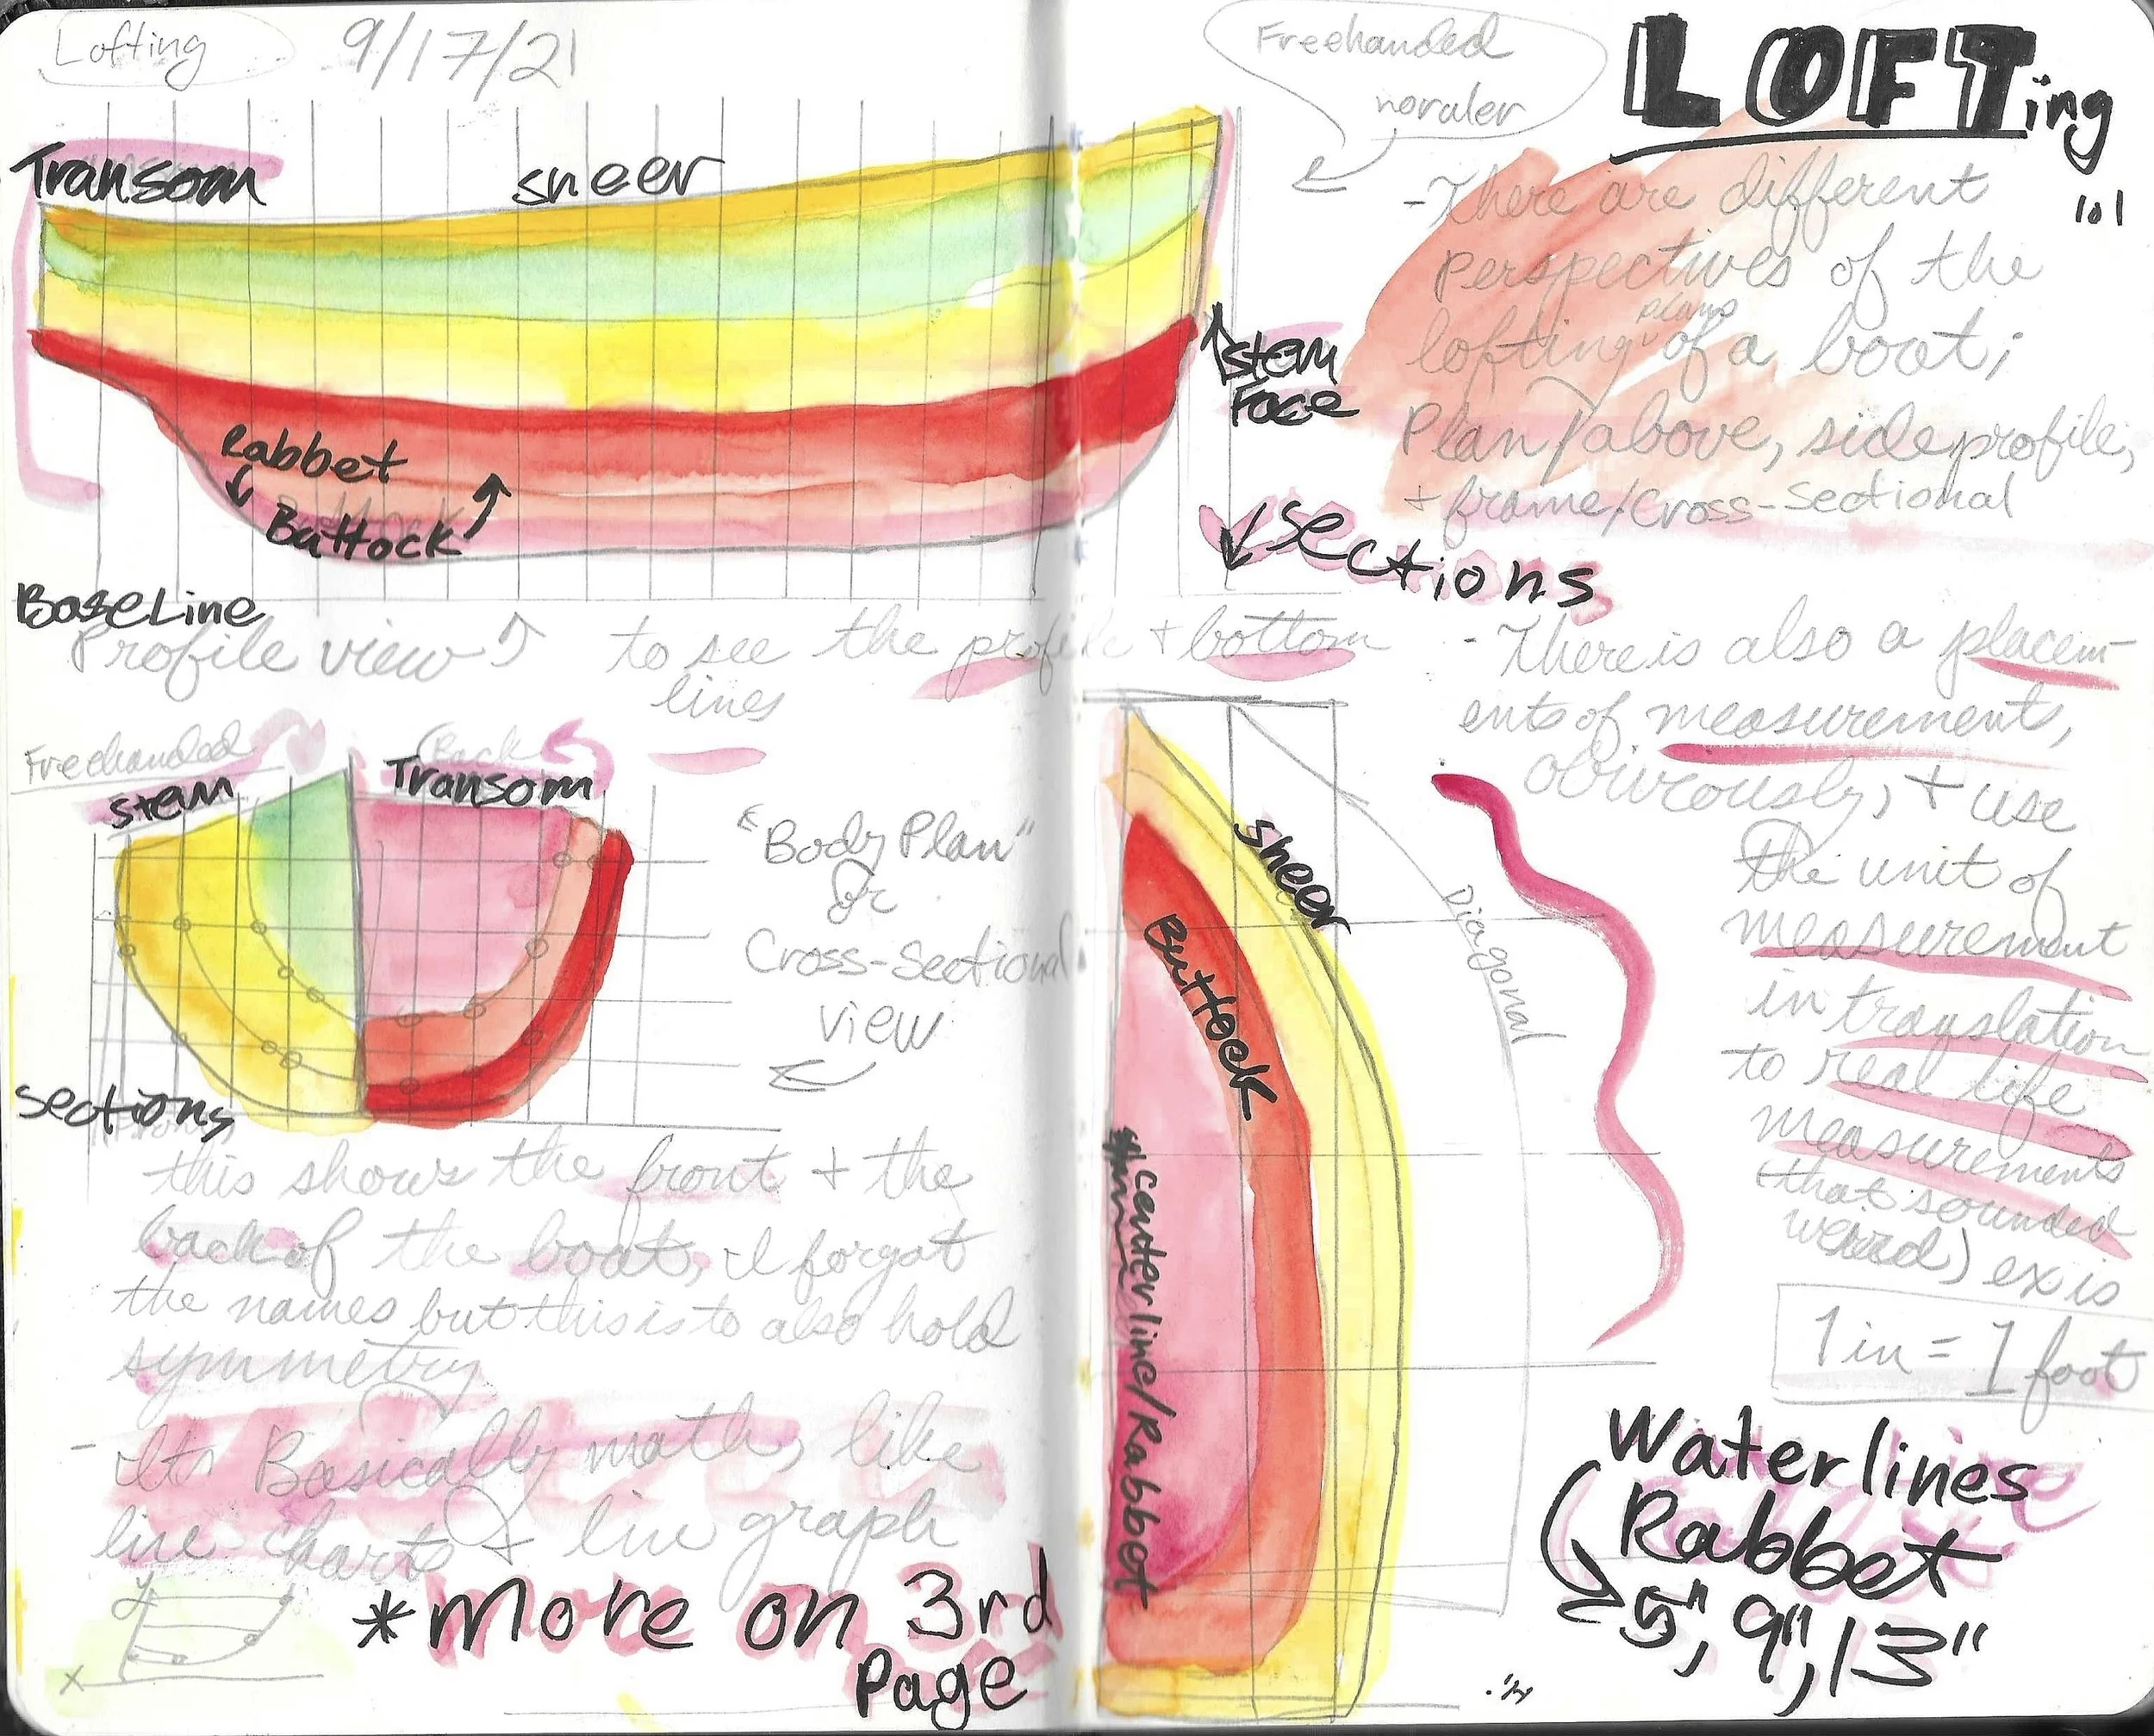 Lofting
9/17/21
Transom
sheer
Rabbet
Buttock
BaseLine
Profile view
to see the profile + bottom
lines
Freehanded
Back
stem
Transom
"Body Plan"
or
Cross-Sectional
view
Sections
this shows the front + the
back of the boat, I forgot
the names but this is to also hold
symmetry
- Its Basically math, like
line charts & line graph
y
x
*More on 3rd
Page
Freehanded
no ruler
LOFTing
101
- There are different
perspectives of the
plans
lofting of a boat;
Plan/above, side profile,
+ frame/Cross-Sectional
Stem
Face
Sections
- There is also a placem-
ents of measurement,
obivrously, + use
the unit of
measurement
in translation
to real life
measurements
(that sounded
weird) ex is
1 in = 1 foot
sheer
Buttock
Diagonal
centerline/Rabbet
Waterlines
Rabbet
5", 9", 13"